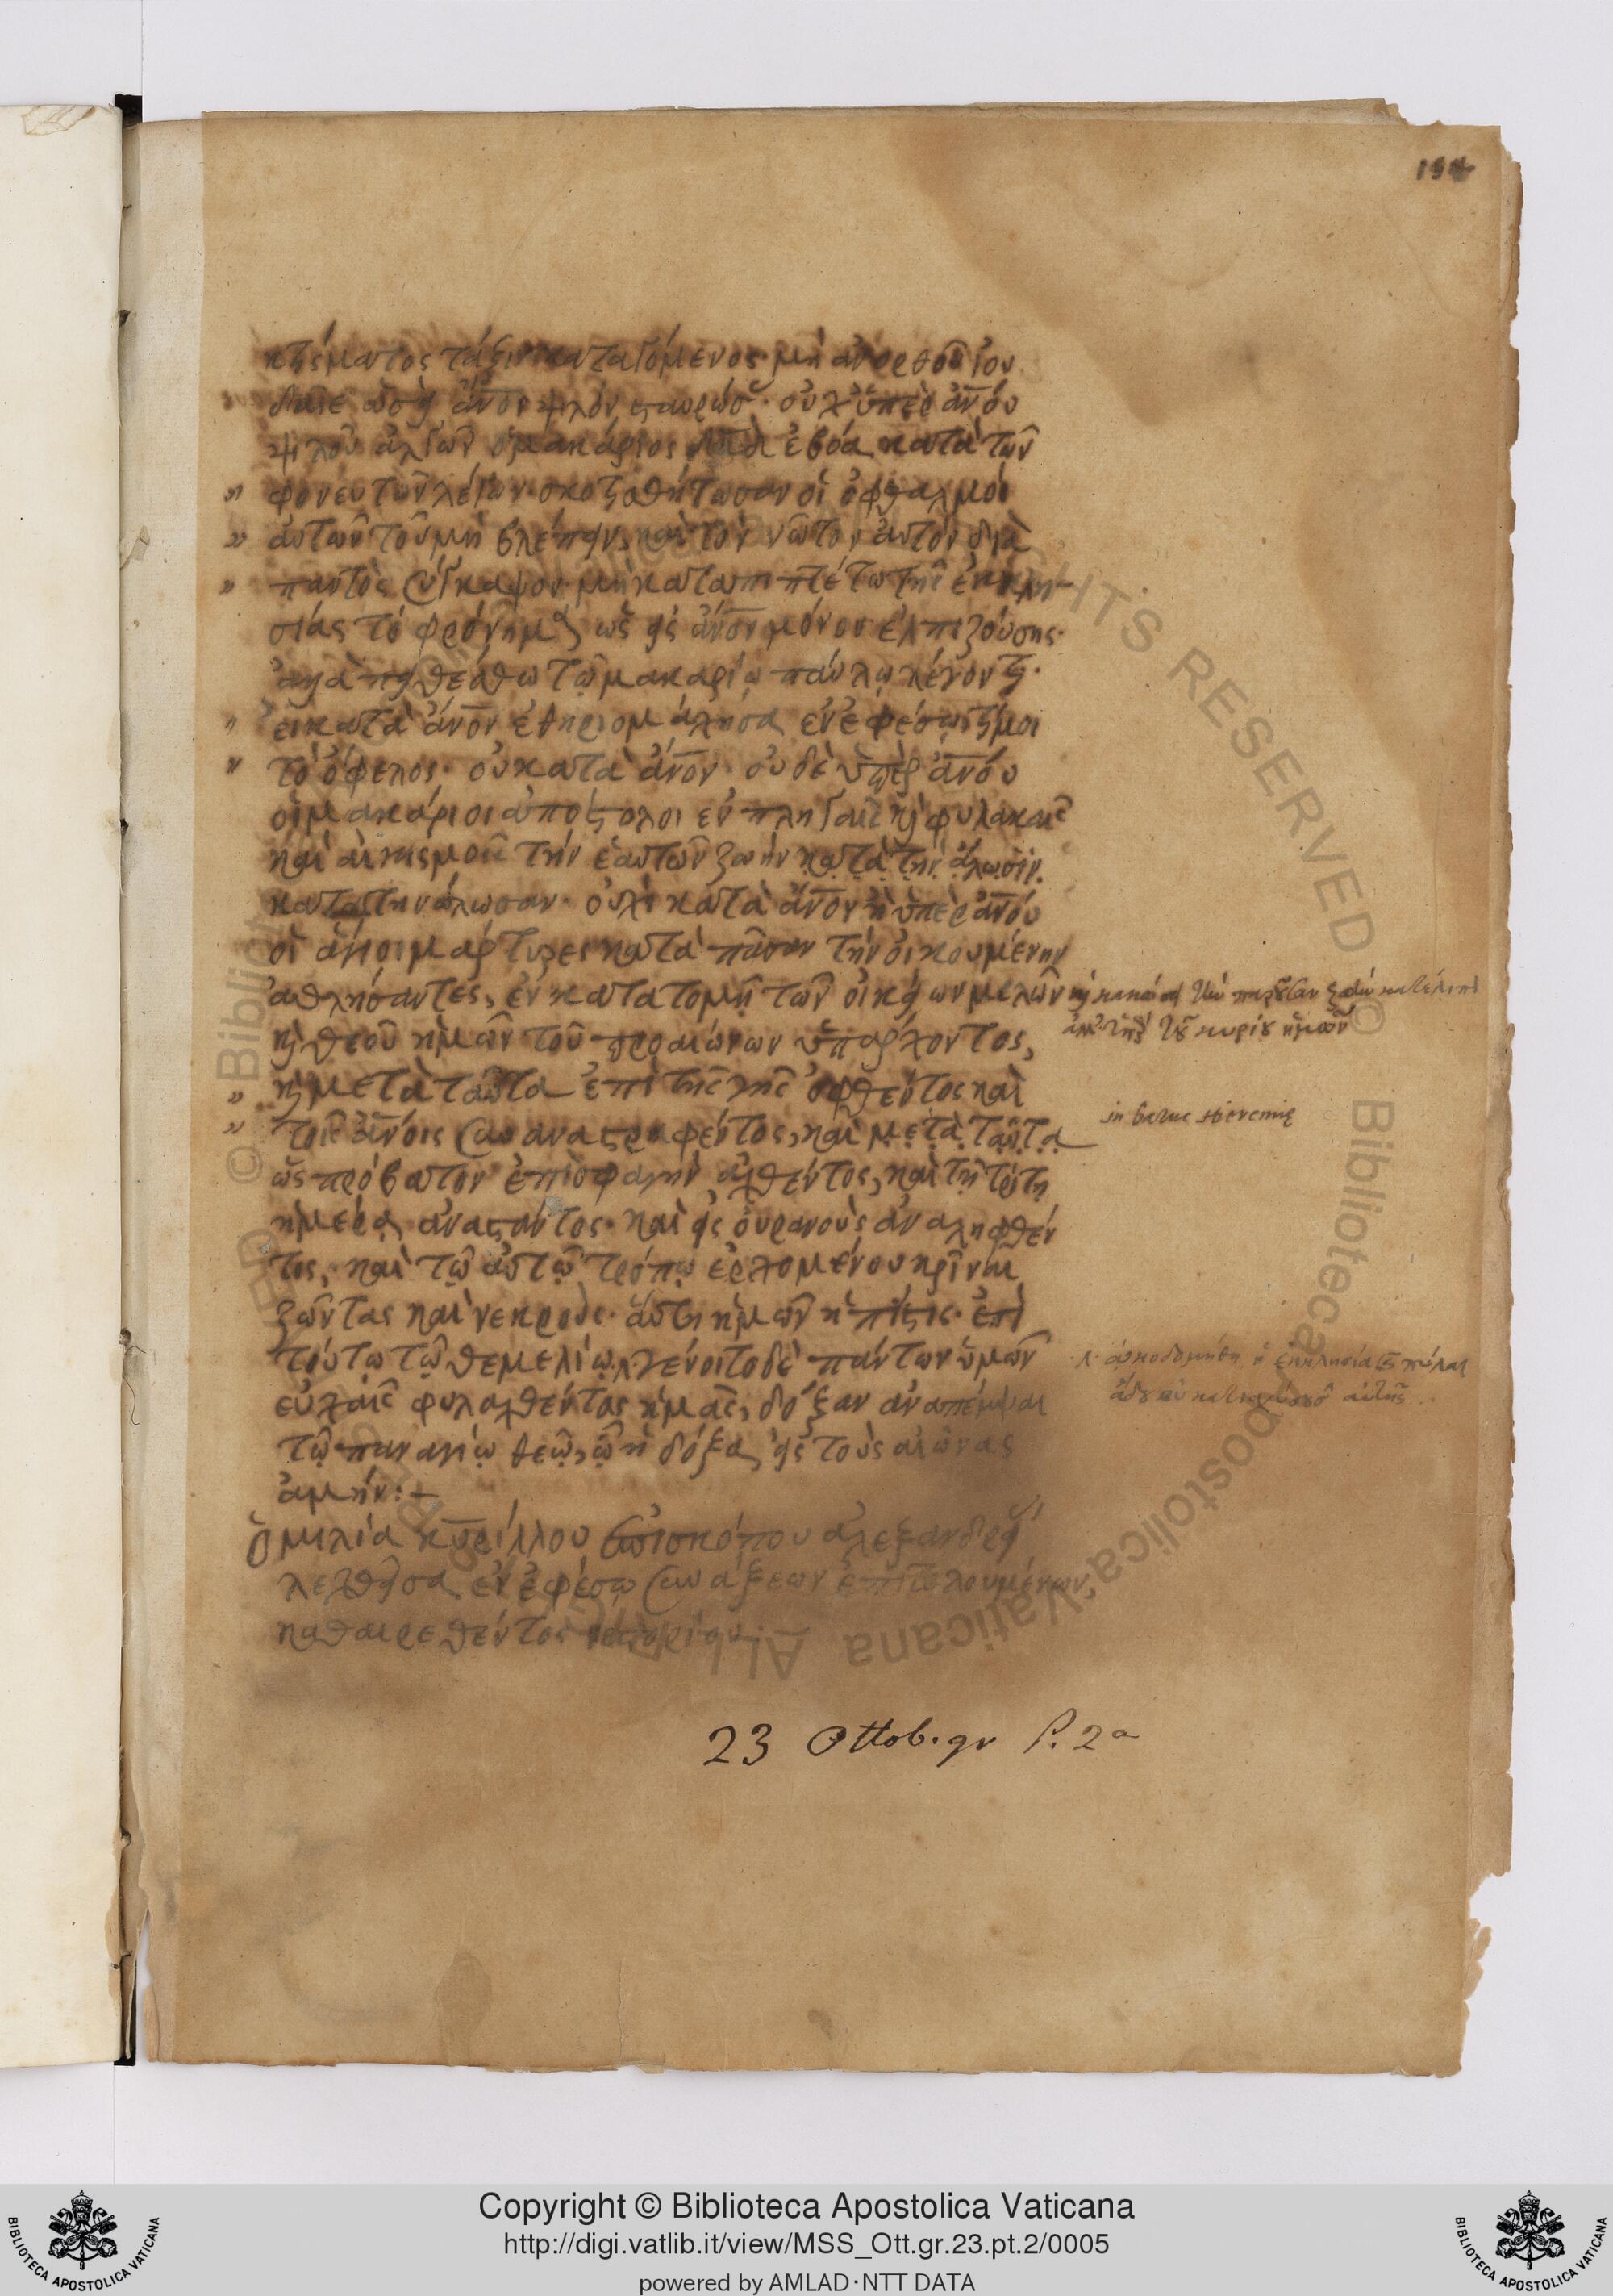 194
κτίσματος τάξιν καταγόμενος· μὴ ἀνορθοῦ ἰου
δαῖε ὡσεὶ ἄνον ψιλὸν σταυρώσ· οὐχ ὑπὲρ ἀνου
ψιλοῦ ἀλγῶν ὁ μακάριος δαδ ἐβόα κατὰ τῶν
φονευτῶν λέγων· σκοτισθήτωσαν οἱ ὀφθαλμοὶ
αὐτῶν τοῦ μὴ βλέπειν, καὶ τὸν νῶτον αὐτῶν διὰ
παντὸς σύγκαμψον· μὴ καταπιπτέτω τῆς ἐκκλη-
σίας τὸ φρόνημα ὡς εἰς ἄνον μόνον ἐλπιζούσης·
ἀλλὰ πειθέσθω τῷ μακαρίῳ παύλῳ λέγοντι·
εἰ κατὰ ἄνον ἐθηριομάχησα ἐν ἐφέσῳ τί μοι
τὸ ὄφελος· οὐ κατὰ ἄνον· οὐδὲ ὑπὲρ ἀνου
οἱ μακάριοι ἀπόστολοι ἐν πληγαῖς καὶ φυλακαῖς
καὶ αἰκισμοῖς τὴν ἑαυτῶν ζωὴν κατὰ τὴν ἅλωσιν
κατὰ τὴν ἅλωσαν· οὐχὶ κατὰ ἄνον ἢ ὑπὲρ ἀνου
οἱ ἅγιοι μάρτυρες κατὰ πᾶσαν τὴν οἰκουμένην
ἀθλήσαντες, ἐν κατατομῇ τῶν οἰκείων μελῶν
καὶ θεοῦ ἡμῶν τοῦ προαιώνων ὑπάρχοντος,
καὶ μετὰ ταῦτα ἐπὶ τῆς γῆς ὀφθέντος καὶ
in baruc Hieremię
τοῖς ἀνοις συναναστραφέντος, καὶ μετὰ ταῦτα
ὡς πρόβατον ἐπὶ σφαγὴν ἀχθέντος, καὶ τῇ τρίτῃ
ἡμέρᾳ ἀναστάντος· καὶ εἰς οὐρανοὺς ἀναληφθέν
τος, καὶ τῷ αὐτῷ τρόπῳ ἐρχομένου κρῖναι
ζῶντας καὶ νεκρούς· αὕτη ἡμῶν ἡ πίστις· ἐπὶ
τούτῳ τῷ θεμελίῳ γένοιτο δὲ πάντων ὑμῶν
ᾠκοδομήθη ἡ ἐκκλησία πύλαι
εὐχαῖς φυλαχθέντας ἡμᾶς, δόξαν ἀναπέμψαι
τῷ παναγίῳ θεῷ, ᾧ ἡ δόξα εἰς τοὺς αἰῶνας
ἀμήν:+
Ὁμιλία κυρίλλου ἐπισκόπου ἀλεξανδρεί
λεχθεῖσα ἐν ἐφέσῳ συνάξεων ἐπιτελουμένων
καθαιρεθέντος νεστορίου
23 Ottob. gr P. 2a
© Biblioteca Apostolica Vaticana ALL RIGHTS RESERVED
Copyright © Biblioteca Apostolica Vaticana
http://digi.vatlib.it/view/MSS_Ott.gr.23.pt.2/0005
powered by AMLAD·NTT DATA
BIBLIOTECA APOSTOLICA VATICANA
BIBLIOTECA APOSTOLICA VATICANA